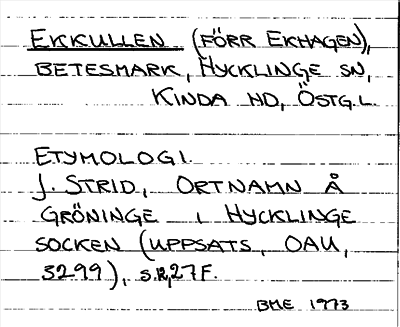 EKKULLEN (FÖRR EKHAGEN),
BETESMARK, HYCKLINGE SN,
KINDA HD, ÖSTG.L.
ETYMOLOGI.
J. STRID, ORTNAMN Å
GRÖNINGE I HYCKLINGE
SOCKEN (UPPSATS, OAU,
3299), 27F.
BME 1973